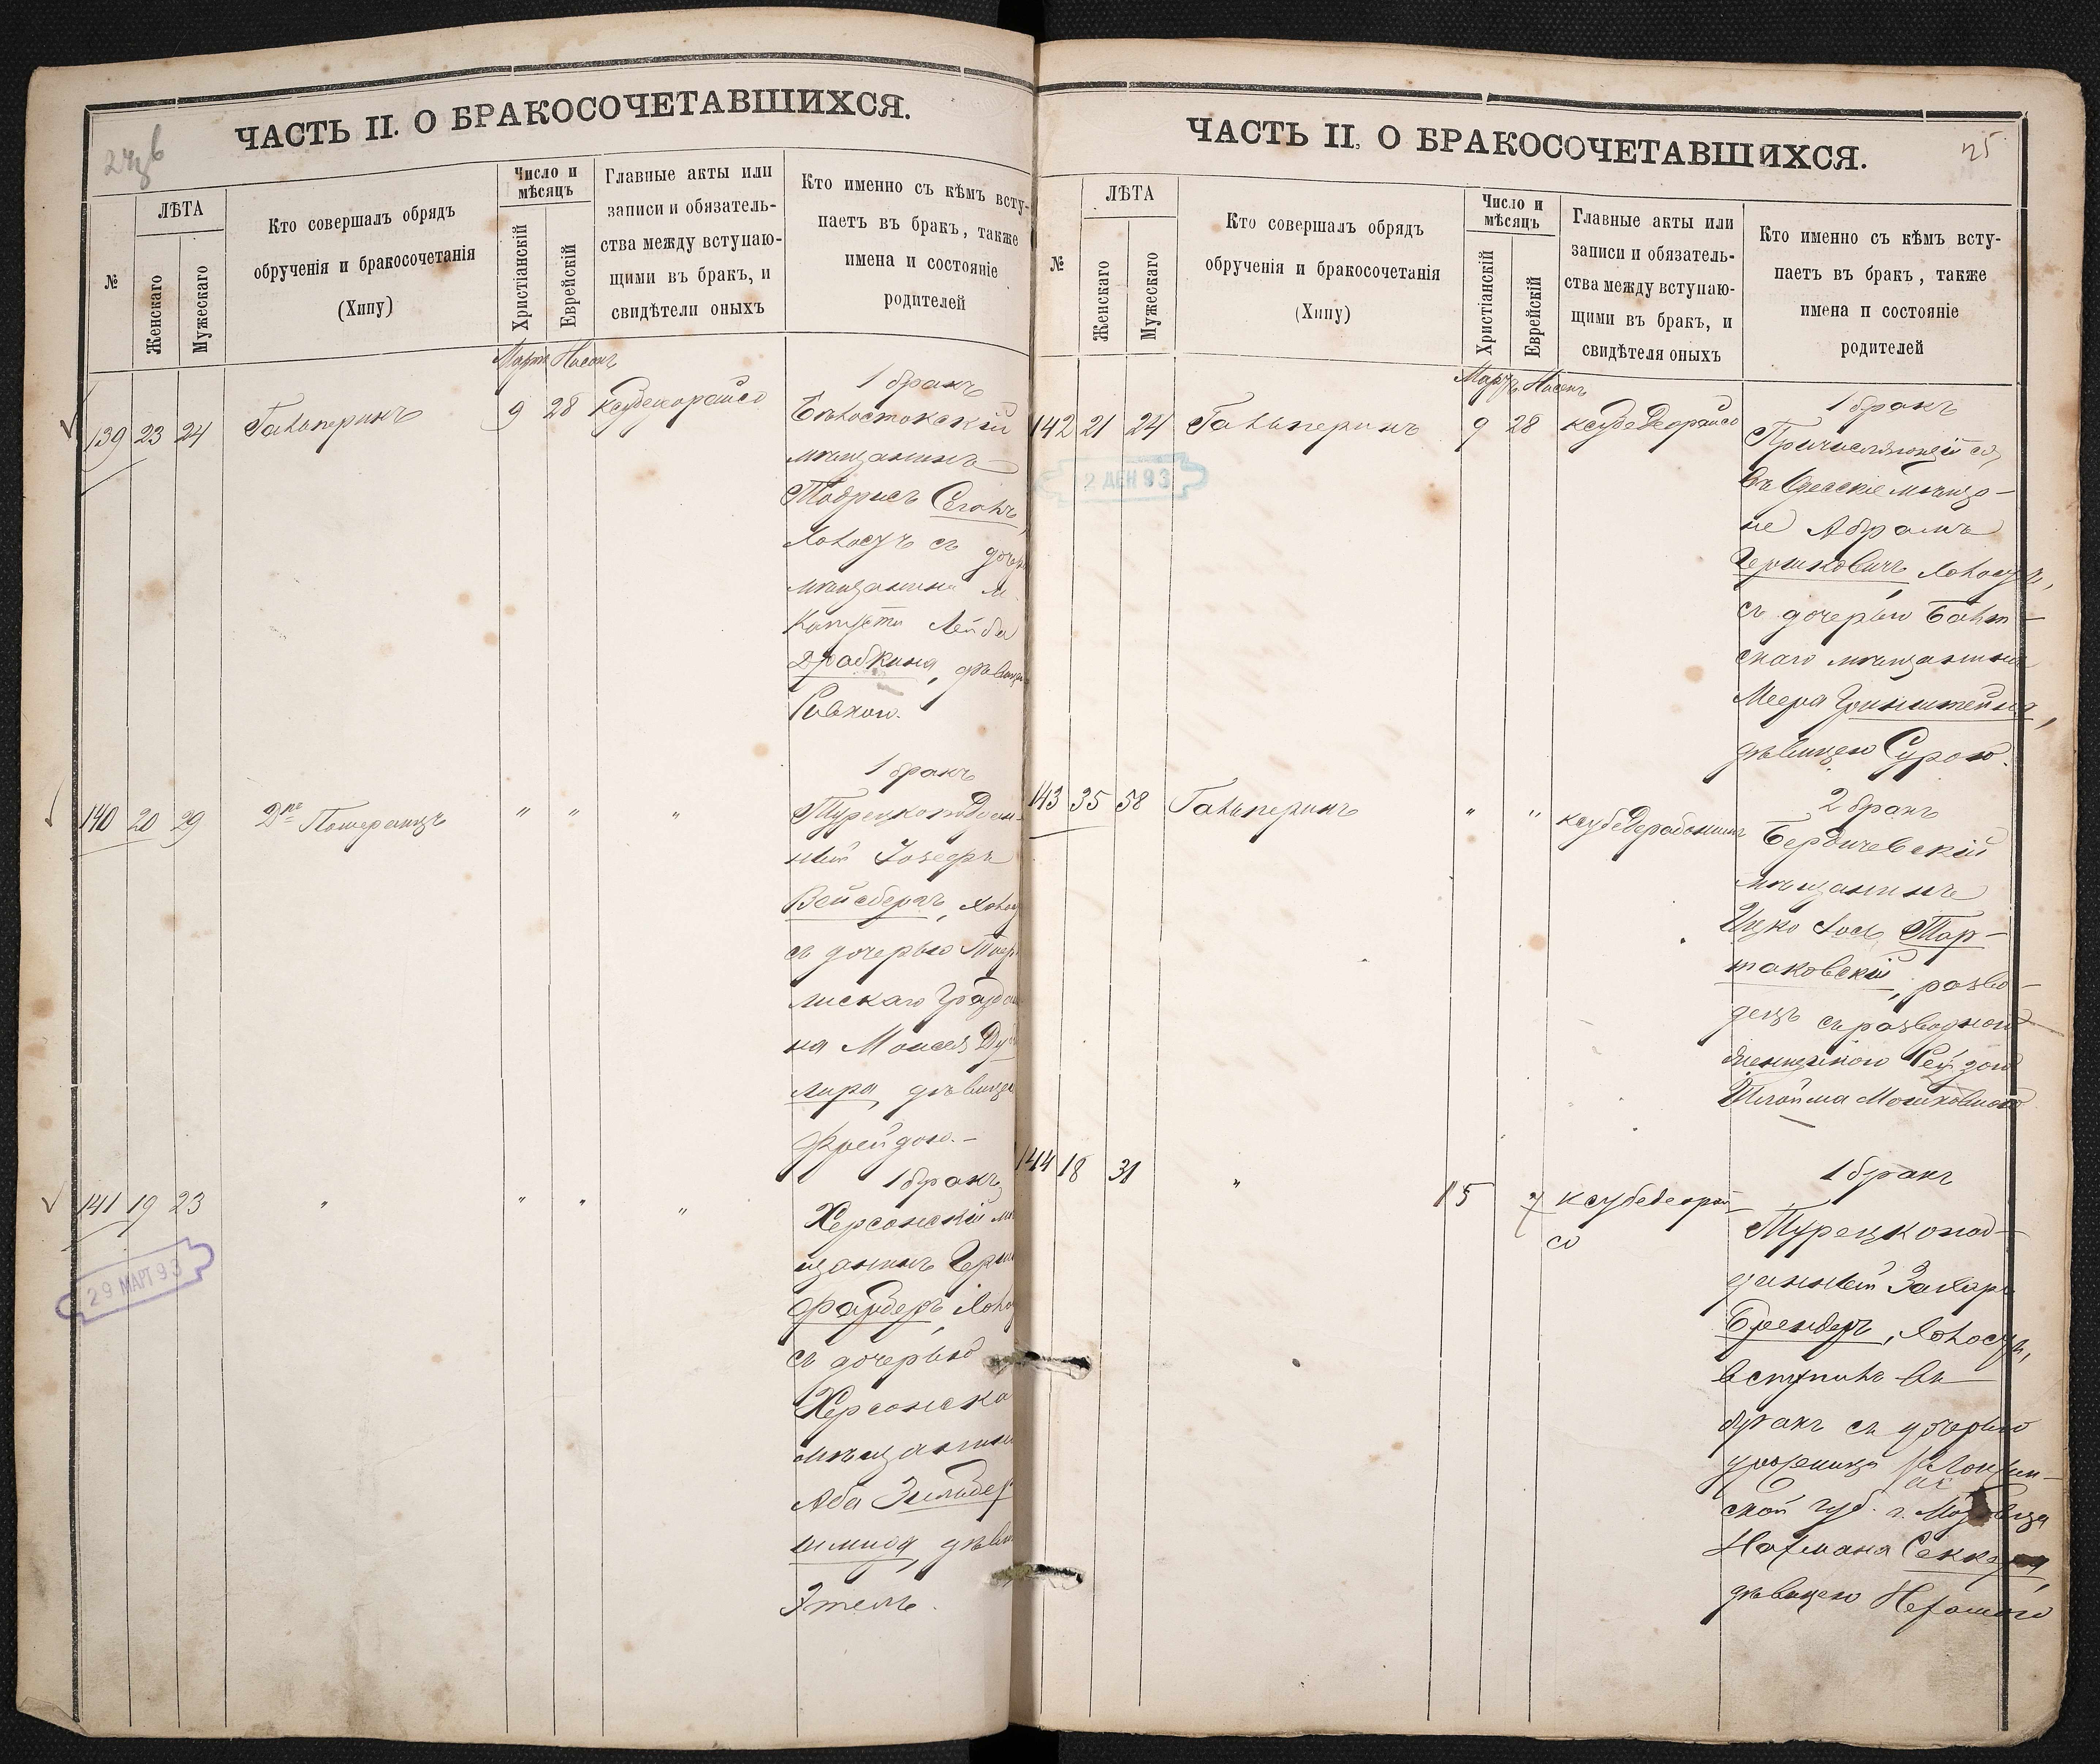 ЧАСТЬ II. О БРАКОСОЧЕТАВШИХСЯ.
№
ЛѢТА
Женскаго
Мужескаго
Кто совершалъ обрядъ
обрученія и бракосочетанія
(Хипу)
Число и
мѣсяцъ
Христіанскій
Еврейскій
Главные акты или
записи и обязатель-
ства между вступаю-
щими въ бракъ, и
свидѣтели оныхъ
Кто именно съ кѣмъ всту-
паетъ въ бракъ, также
имена и состояніе
родителей
Мартъ Нисонъ
139 23 24 Гальперинъ 9 28
1 бракъ
Бѣлостокскій
мѣщанинъ
Тодрисъ Сегалъ,
холостъ съ дочерью
мѣщанина м.
Копусти Лейба
Драбкина, дѣвицею
Ривкою.
140 20 29 Дръ Померанцъ " " "
1 бракъ
Турецкоподдан-
ный Іозефъ
Вейсбергъ, холос
съ дочерью
на Моисея
лира, дѣвицею
Фрейдою.-
141 19 23 " " " "
1 бракъ
Херсонскій мѣ
щанинъ Герш
Файбергъ, холос
съ дочерью
Херсонска
мѣщанина
Аба Зильбер
шмида, дѣви
Этель.
29 МАРТ 93
ЧАСТЬ II. О БРАКОСОЧЕТАВШИХСЯ.
25
№
ЛѢТА
Женскаго
Мужескаго
Кто совершалъ обрядъ
обрученія и бракосочетанія
(Хипу)
Число и
мѣсяцъ
Христіанскій
Еврейскій
Главные акты или
записи и обязатель-
ства между вступаю-
щими въ бракъ, и
свидѣтеля оныхъ
Кто именно съ кѣмъ всту-
паетъ въ бракъ, также
имена и состояніе
родителей
Мартъ Нисонъ
142 21 24 Гальперинъ 9 28 ксубедеорайсо
2 ДЕН 93
1 бракъ
Причисляющійся
въ Одесскіе мѣща-
не Абрамъ
Гершковичъ, холостъ,
съ дочерью Балт-
скаго мѣщанина
Меера Гринштейна,
дѣвицею Сурою.
143 35 58 Гальперинъ " "
2 бракъ
Бердичевскій
мѣщанинъ
Ицко Іось Тар-
таковскій, разво-
децъ съ разводною
женщиною Рейзою
Шлойма Мошковною
144 18 31 " 15 7 ксубедеорай-
со
1 бракъ
Турецкопод-
данный Захарь
Брендеръ, холостъ,
вступилъ въ
бракъ съ дочерью
уроженца
ской губ. г.
Нахмана
дѣвицею Нехамою